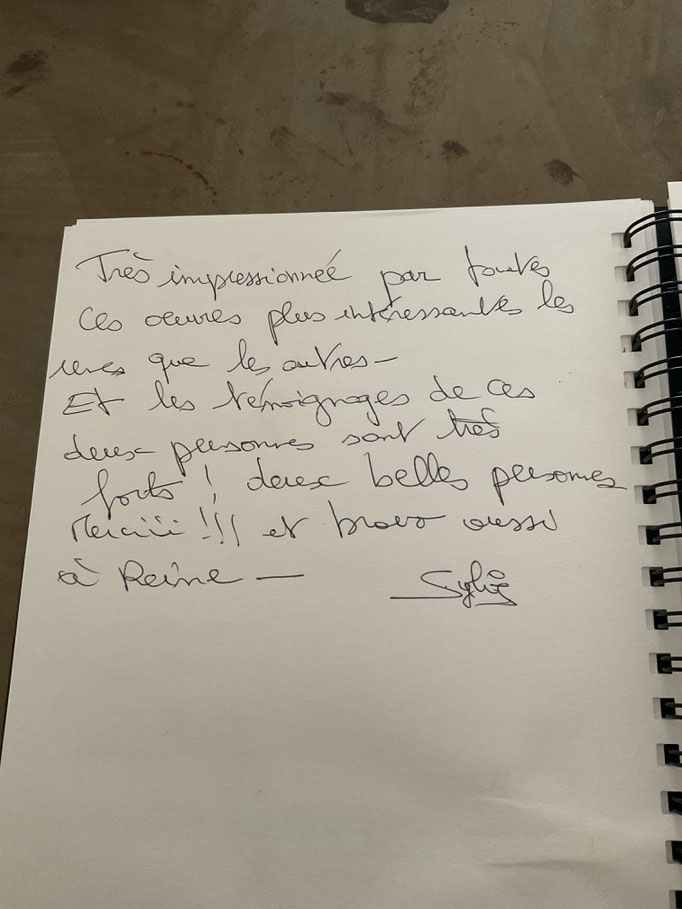 Très impressionnée par toutes
ces oeuvres plus intéressantes les
unes que les autres –
Et les témoignages de ces
deux personnes sont très
forts ! deux belles personnes
Merciiii !!! et bravo aussi
à Reine —
Sylvie